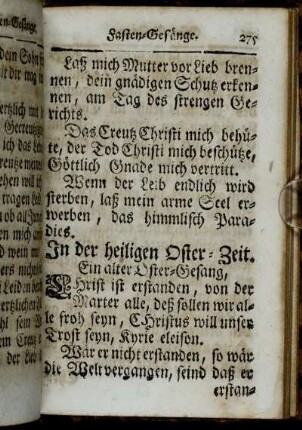 Fasten-Gesänge. 275
Laß mich Mutter vor Lieb bren-
nen, dein gnädigen Schutz erken-
nen, am Tag des strengen Ge-
richts.
Das Creutz Christi mich behü-
te, der Tod Christi mich beschütze,
Göttlich Gnade mich vertritt.
Wenn der Leib endlich wird
sterben, laß mein arme Seel er-
werben, das himmlisch Para-
dies.
In der heiligen Oster-Zeit.
Ein alter Oster-Gesang,
CHrist ist erstanden, von der
Marter alle, deß sollen wir al-
le froh seyn, CHristus will unser
Trost seyn, Kyrie eleison.
Wär er nicht erstanden, so wär
die Welt vergangen, seind daß er
erstan-